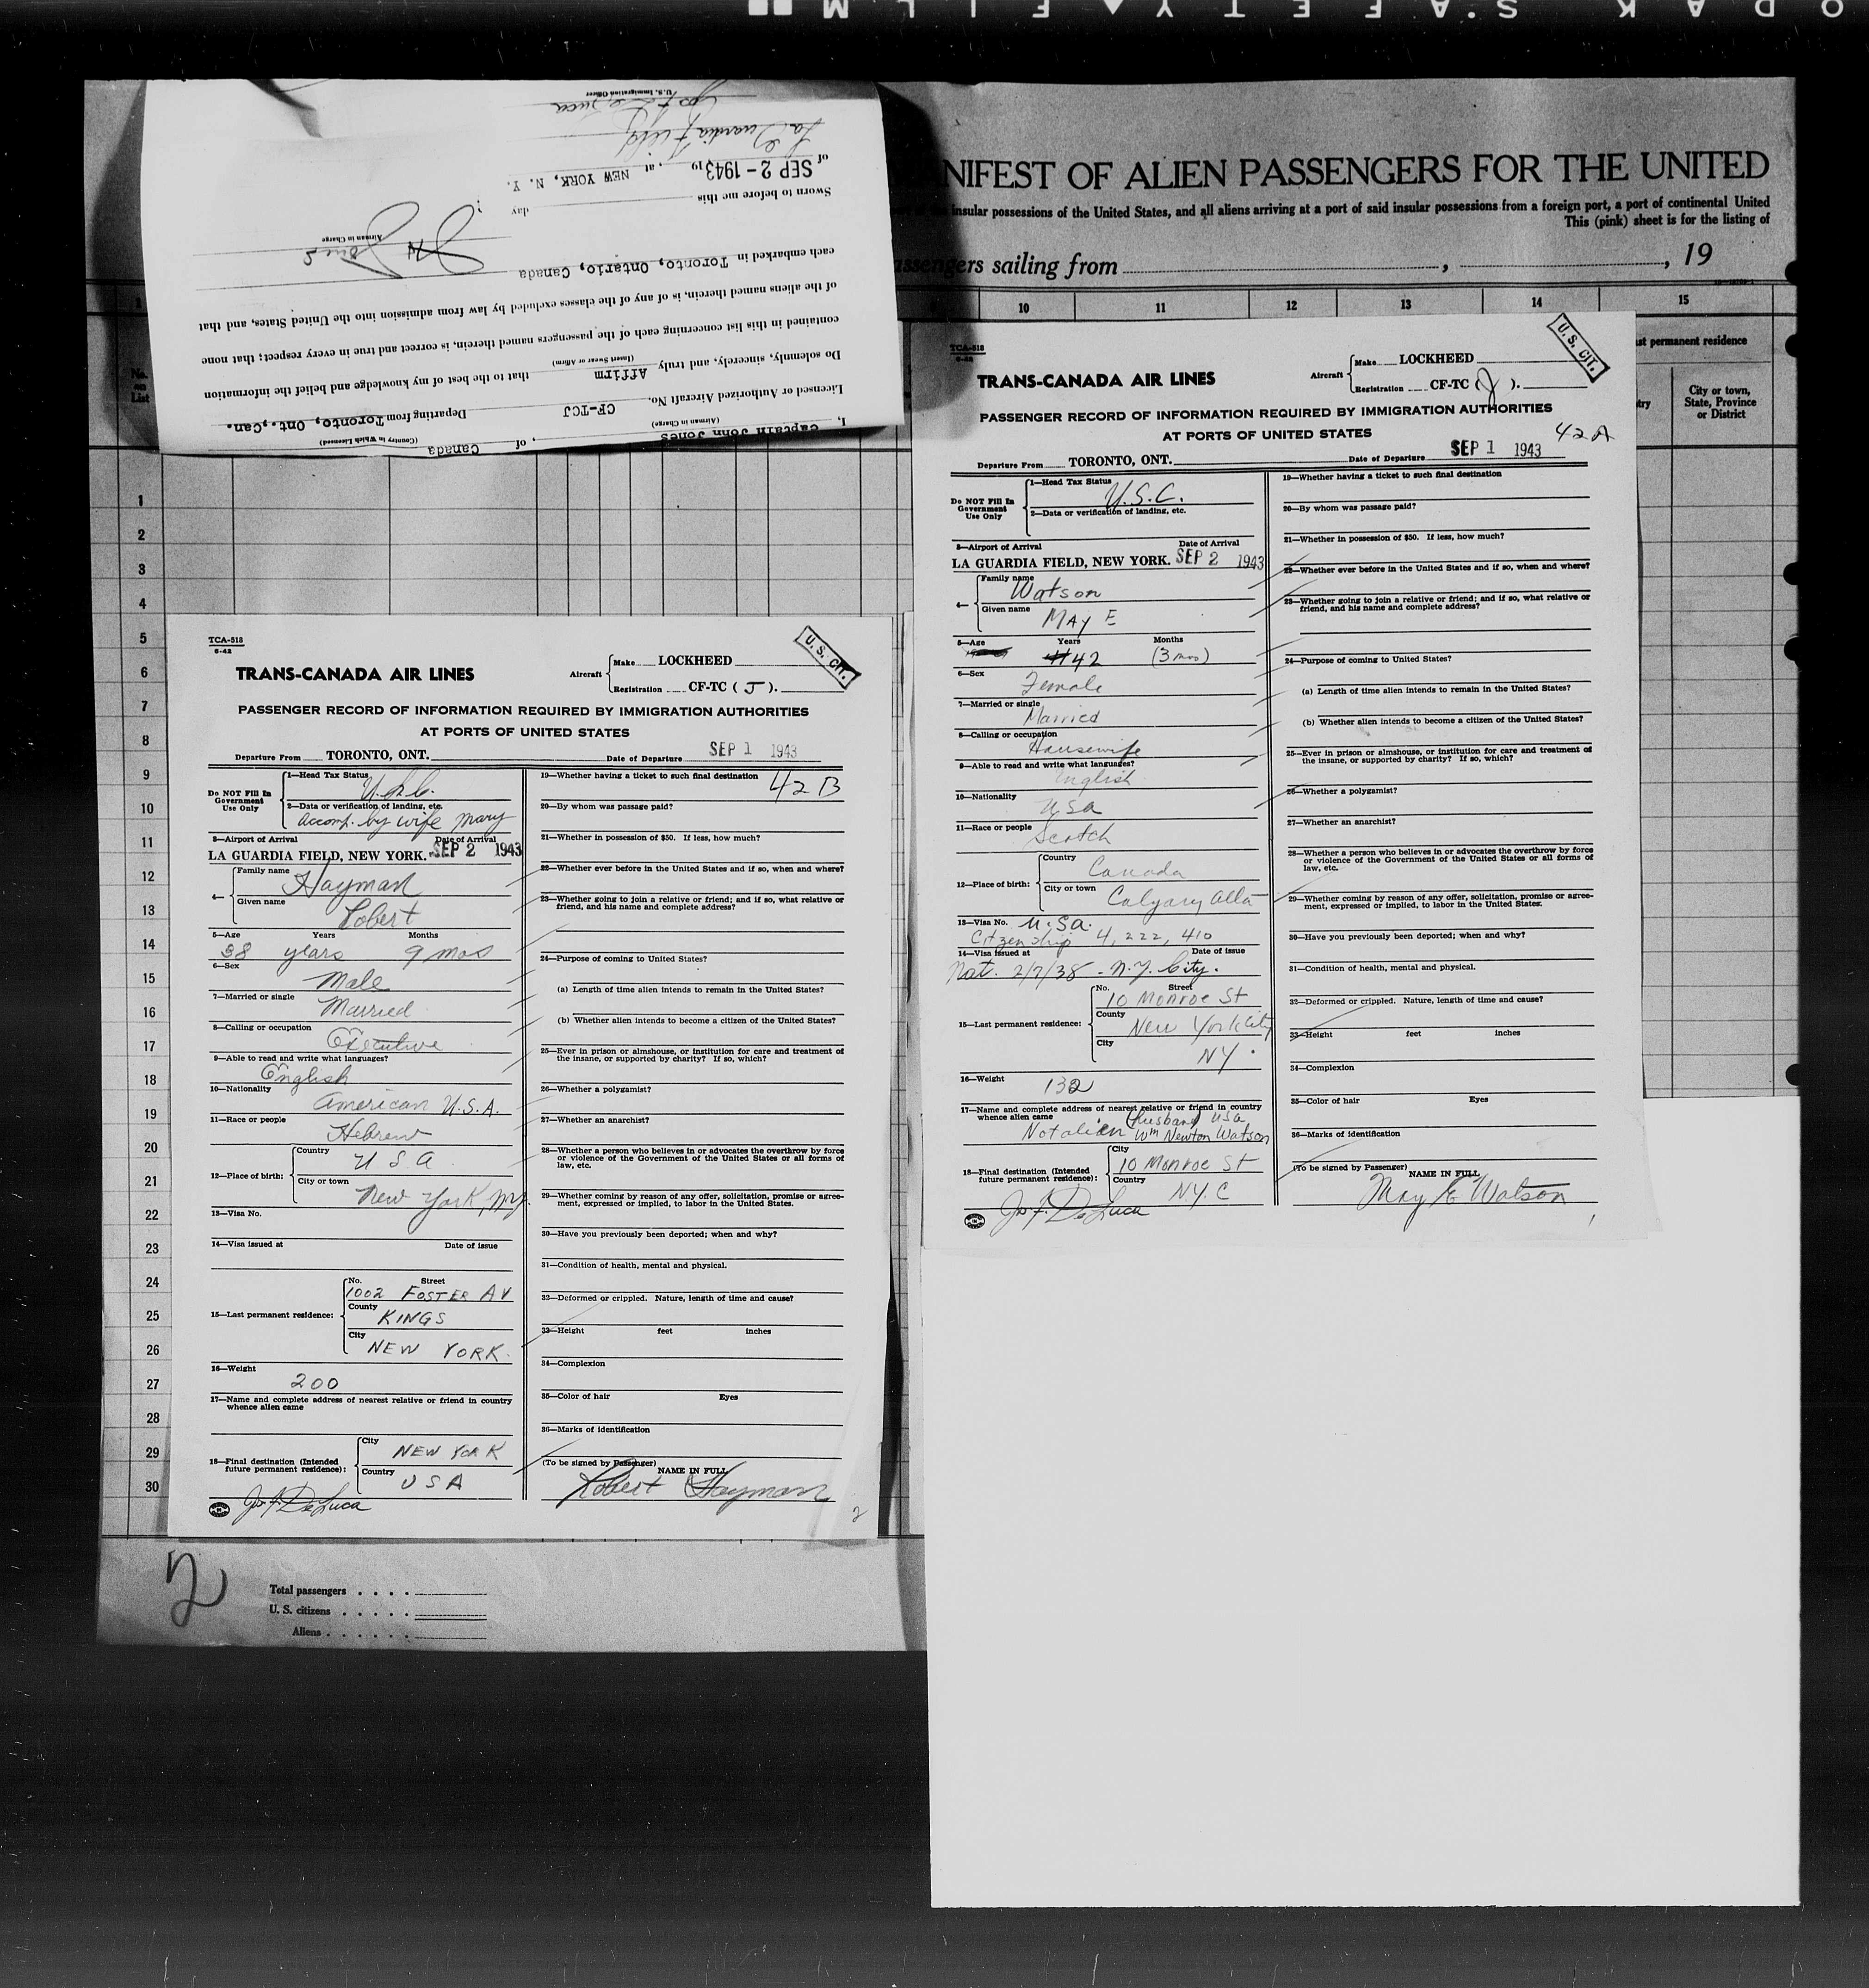 KODAK SAFETY FILM
U.S. Immigration Officer
La Guardia Field
of SEP 2 - 1943 19 , at NEW YORK, N. Y.
Sworn to before me this day
Airman in Charge
each embarked in Toronto, Ontario, Canada
of the aliens named therein, is of any of the classes excluded by law from admission into the United States, and that
contained in this list concerning each of the passengers named therein, is correct and true in every respect; that none
Do solemnly, sincerely, and truly Affirm that to the best of my knowledge and belief the information
(Insert Swear or Affirm)
Licensed or Authorized Aircraft No. CF-TCJ Departing from Toronto, Ont., Can.
(Airman in Charge) (Country in Which Licensed)
I, Captain John Jones , of Canada
NIFEST OF ALIEN PASSENGERS FOR THE UNITED
insular possessions of the United States, and all aliens arriving at a port of said insular possessions from a foreign port, a port of continental United
This (pink) sheet is for the listing of
assengers sailing from , , 19
10 11 12 13 14 15
st permanent residence
City or town,
State, Province
or District
No.
on
List
1
2
3
4
5
6
7
8
9
10
11
12
13
14
15
16
17
18
19
20
21
22
23
24
25
26
27
28
29
30
TCA-518
6-42
U. S. CIT.
TRANS-CANADA AIR LINES
Aircraft Make LOCKHEED
Registration CF-TC ( J ).
PASSENGER RECORD OF INFORMATION REQUIRED BY IMMIGRATION AUTHORITIES
AT PORTS OF UNITED STATES
Departure From TORONTO, ONT. Date of Departure SEP 1 1943
42 B
Do NOT Fill In
Government
Use Only
1—Head Tax Status U.S.C.
2—Data or verification of landing, etc.
Accomp. by wife Mary
3—Airport of Arrival Date of Arrival
LA GUARDIA FIELD, NEW YORK. SEP 2 1943
4— Family name Hayman
Given name Robert
5—Age Years Months
38 years 9 mos
6—Sex Male
7—Married or single Married
8—Calling or occupation Executive
9—Able to read and write what languages?
English
10—Nationality American U.S.A.
11—Race or people Hebrew
12—Place of birth: Country U S A
City or town New York, N.Y.
13—Visa No.
14—Visa issued at Date of issue
15—Last permanent residence: No. Street
1002 FOSTER AV
County KINGS
City NEW YORK
16—Weight 200
17—Name and complete address of nearest relative or friend in country
whence alien came
18—Final destination (Intended
future permanent residence):
City NEW YORK
Country USA
Jos F. DeLuca
19—Whether having a ticket to such final destination
20—By whom was passage paid?
21—Whether in possession of $50. If less, how much?
22—Whether ever before in the United States and if so, when and where?
23—Whether going to join a relative or friend; and if so, what relative or
friend, and his name and complete address?
24—Purpose of coming to United States?
(a) Length of time alien intends to remain in the United States?
(b) Whether alien intends to become a citizen of the United States?
25—Ever in prison or almshouse, or institution for care and treatment of
the insane, or supported by charity? If so, which?
26—Whether a polygamist?
27—Whether an anarchist?
28—Whether a person who believes in or advocates the overthrow by force
or violence of the Government of the United States or all forms of
law, etc.
29—Whether coming by reason of any offer, solicitation, promise or agree-
ment, expressed or implied, to labor in the United States.
30—Have you previously been deported; when and why?
31—Condition of health, mental and physical.
32—Deformed or crippled. Nature, length of time and cause?
33—Height feet inches
34—Complexion
35—Color of hair Eyes
36—Marks of identification
(To be signed by Passenger)
NAME IN FULL
Robert Hayman
2
2
Total passengers
U. S. citizens
Aliens
TCA-518
6-42
U. S. CIT.
TRANS-CANADA AIR LINES
Aircraft Make LOCKHEED
Registration CF-TC ( J ).
PASSENGER RECORD OF INFORMATION REQUIRED BY IMMIGRATION AUTHORITIES
AT PORTS OF UNITED STATES
42 A
Departure From TORONTO, ONT. Date of Departure SEP 1 1943
Do NOT Fill In
Government
Use Only
1—Head Tax Status U.S.C.
2—Data or verification of landing, etc.
3—Airport of Arrival Date of Arrival
LA GUARDIA FIELD, NEW YORK. SEP 2 1943
4— Family name Watson
Given name MAY E
5—Age Years Months
42 (3 mos)
6—Sex Female
7—Married or single Married
8—Calling or occupation Housewife
9—Able to read and write what languages?
English
10—Nationality USA
11—Race or people Scotch
12—Place of birth: Country Canada
City or town Calgary Alta
13—Visa No. U.Sa.
Citzenship 4,222,410
14—Visa issued at Date of issue
Nat. 2/7/38 - N.Y. City.
15—Last permanent residence: No. Street
10 Monroe St
County New York City
City NY.
16—Weight 132
17—Name and complete address of nearest relative or friend in country
whence alien came (Husband) USA
Not alien Wm Newton Watson
18—Final destination (Intended
future permanent residence):
City 10 Monroe St
Country N.Y.C
Jos. F. DeLuca
19—Whether having a ticket to such final destination
20—By whom was passage paid?
21—Whether in possession of $50. If less, how much?
22—Whether ever before in the United States and if so, when and where?
23—Whether going to join a relative or friend; and if so, what relative or
friend, and his name and complete address?
24—Purpose of coming to United States?
(a) Length of time alien intends to remain in the United States?
(b) Whether alien intends to become a citizen of the United States?
25—Ever in prison or almshouse, or institution for care and treatment of
the insane, or supported by charity? If so, which?
26—Whether a polygamist?
27—Whether an anarchist?
28—Whether a person who believes in or advocates the overthrow by force
or violence of the Government of the United States or all forms of
law, etc.
29—Whether coming by reason of any offer, solicitation, promise or agree-
ment, expressed or implied, to labor in the United States.
30—Have you previously been deported; when and why?
31—Condition of health, mental and physical.
32—Deformed or crippled. Nature, length of time and cause?
33—Height feet inches
34—Complexion
35—Color of hair Eyes
36—Marks of identification
(To be signed by Passenger)
NAME IN FULL
May E Watson